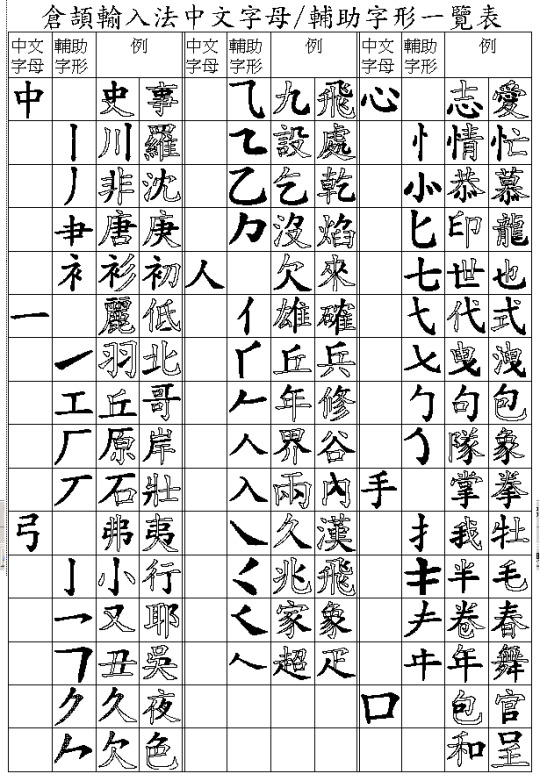 倉頡輸入法中文字母/輔助字形一覽表
中文 輔助 例 中文 輔助 例 中文 輔助 例
字母 字形 字母 字形 字母 字形
中 史 事 ⺄ 九 飛 心 志 愛
丨 川 羅 設 處 忄 情 忙
丿 非 沈 乙 乞 乾 ⺗ 恭 慕
肀 唐 庚 沒 焰 匕 印 龍
衤 衫 初 人 欠 來 七 世 也
一 麗 低 亻 雄 確 代 式
㇀ 羽 北 丘 兵 曳 洩
工 丘 哥 𠂉 年 修 勹 句 包
厂 原 岸 人 界 谷 隊 象
丆 石 壯 入 兩 內 手 掌 拳
弓 弗 夷 ㇏ 久 漢 扌 我 牡
亅 小 行 兆 飛 半 毛
乛 又 耶 家 象 卷 春
丑 吳 超 疋 年 舞
久 夜 口 包 官
欠 色 和 呈